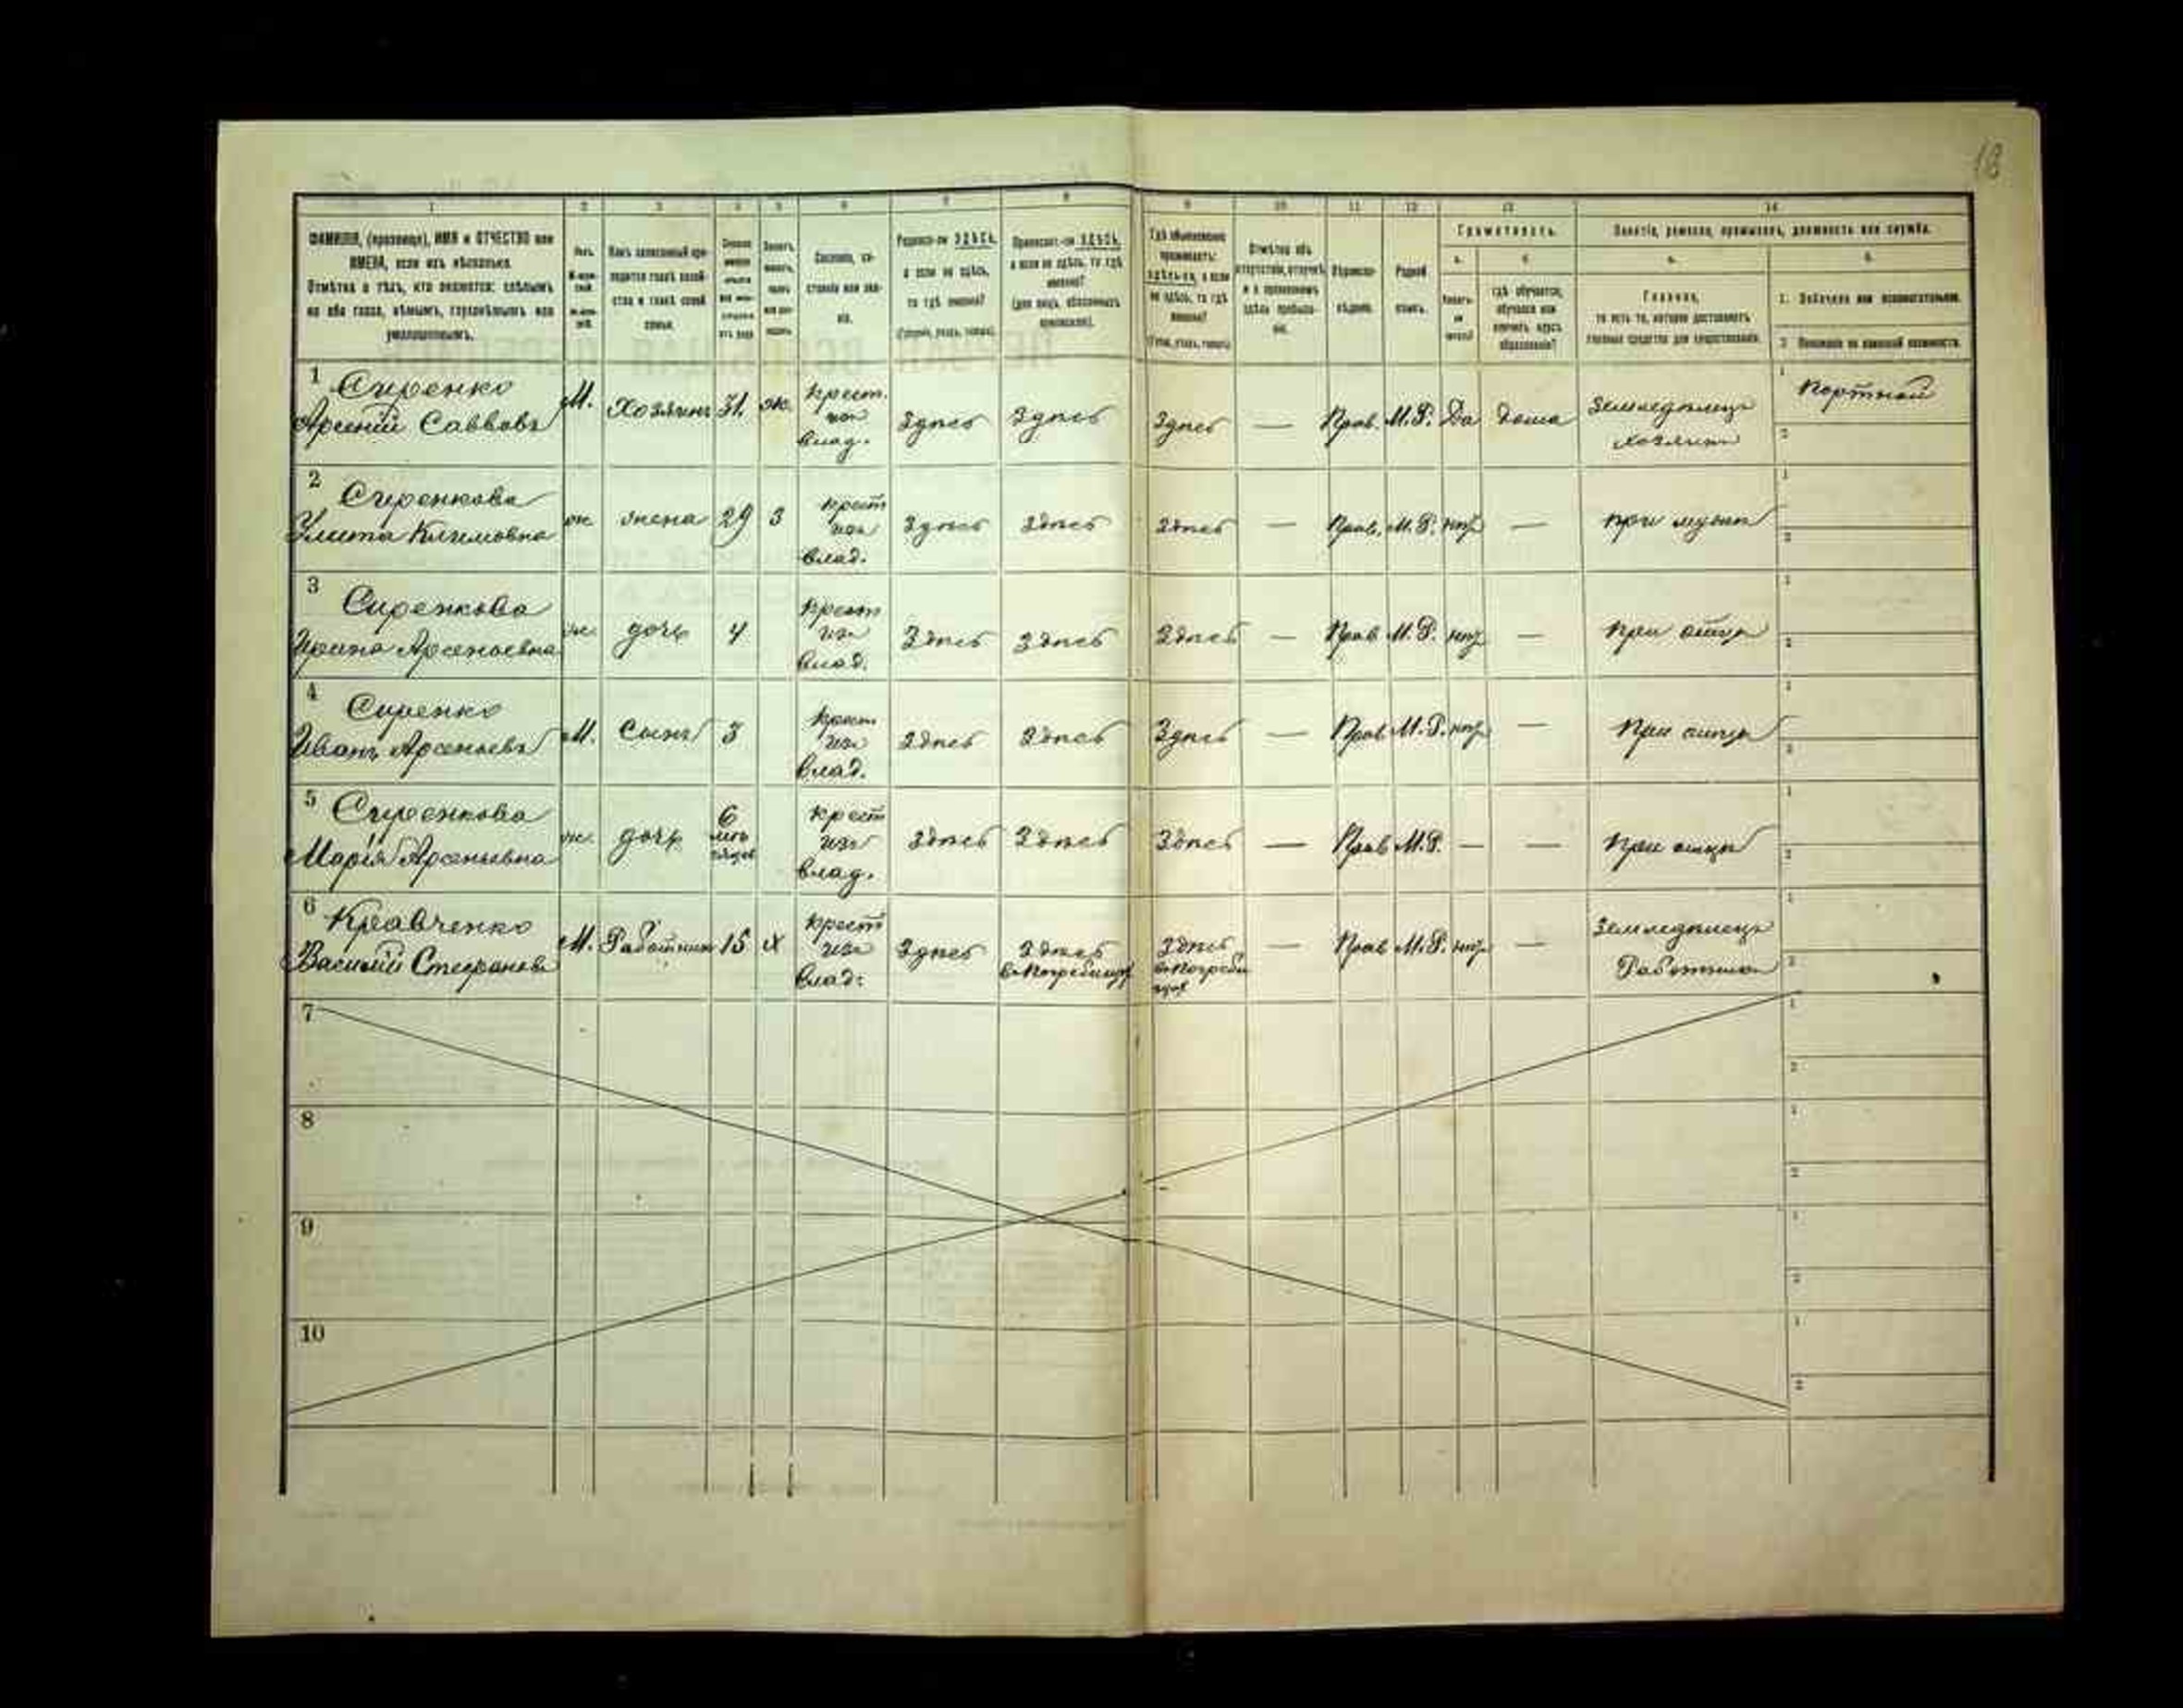 18
1 2 3 4 5 6 7 8 9 10 11 12 13 14
ФАМИЛІЯ, (прозвище), ИМЯ и ОТЧЕСТВО или
ИМЕНА, если ихъ нѣсколько.
Отмѣтка о тѣхъ, кто окажется: слѣпымъ
на оба глаза, нѣмымъ, глухонѣмымъ или
умалишеннымъ.
Полъ.
Какъ записанный при-
ходится главѣ хозяй-
ства и главѣ своей
семьи.
Сословіе, со-
стояніе или зва-
ніе.
Родился-ли ЗДѢСЬ,
а если не здѣсь,
то гдѣ именно?
(Губернія, уѣздъ, городъ).
Приписанъ-ли ЗДѢСЬ,
а если не здѣсь, то гдѣ
именно?
(для лицъ, обязанныхъ
припискою).
Гдѣ обыкновенно
проживаетъ:
здѣсь-ли, а если
не здѣсь, то гдѣ
именно?
(Губ., уѣздъ, городъ).
Отмѣтка объ
отсутствіи, отлучкѣ
и о временномъ
здѣсь пребыва-
ніи.
Вѣроиспо-
вѣданіе.
Родной
языкъ.
Грамотность.
а. б.
Умѣетъ-
ли
читать?
гдѣ обучается,
обучался или
кончилъ курсъ
образованія?
Занятіе, ремесло, промыселъ, должность или служба.
а. б.
Главное,
то есть то, которое доставляетъ
главныя средства для существованія.
1. Побочное или вспомогательное.
2. Положеніе по воинской повинности.
1 Сиренко
Арсеній Саввовъ
М. Хозяинъ 31. ж. крест. изъ влад. Здѣсь Здѣсь Здѣсь — Прав. М.Р. Да дома Земледѣлецъ хозяинъ 1 Портной
2
2 Сиренкова
Улита Климовна
ж. жена 29 з крест изъ влад. Здѣсь Здѣсь Здѣсь — Прав. М.Р. нѣтъ — при мужѣ 1
2
3 Сиренкова
Ирина Арсеньевна
ж. дочь 4 крест изъ влад. Здѣсь Здѣсь Здѣсь — Прав М.Р. нѣтъ — при отцѣ 1
2
4 Сиренко
Иванъ Арсеньевъ
М. Сынъ 3 крест изъ влад. Здѣсь Здѣсь Здѣсь — Прав М.Р. нѣтъ — При отцѣ 1
2
5 Сиренкова
Марія Арсеньевна
ж. дочь 6 мѣсяцев крест изъ влад. Здѣсь Здѣсь Здѣсь — Прав М.Р. — — При отцѣ 1
2
6 Кравченко
Василій Стефановъ
М. Работник 15 х крест изъ влад: Здѣсь Здѣсь в Погребищах Здѣсь в Погребищах — Прав М.Р. нѣтъ — Земледѣлецъ Работник 1
2
7 1
2
8 1
2
9 1
2
10 1
2